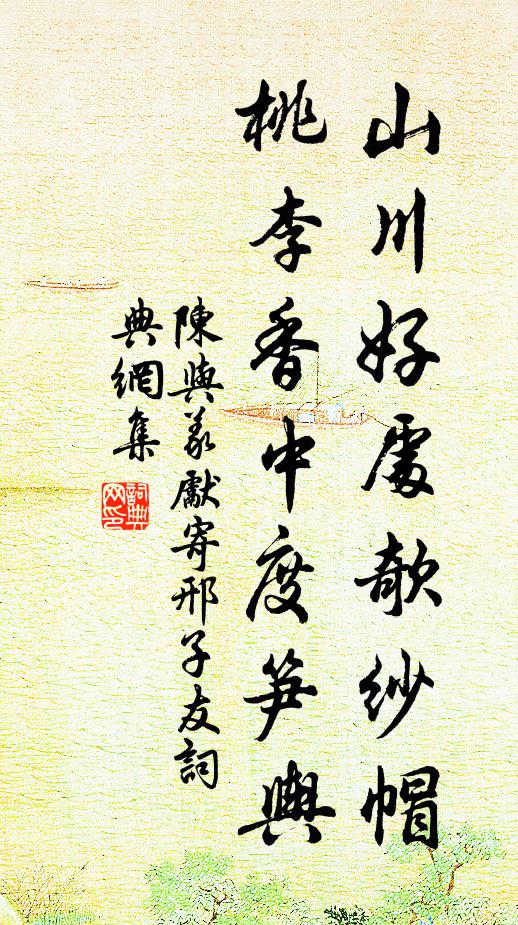 山川好處欹紗帽
桃李香中度笋輿
陳與義獻寄邢子友詞
典網集
詞典
网印